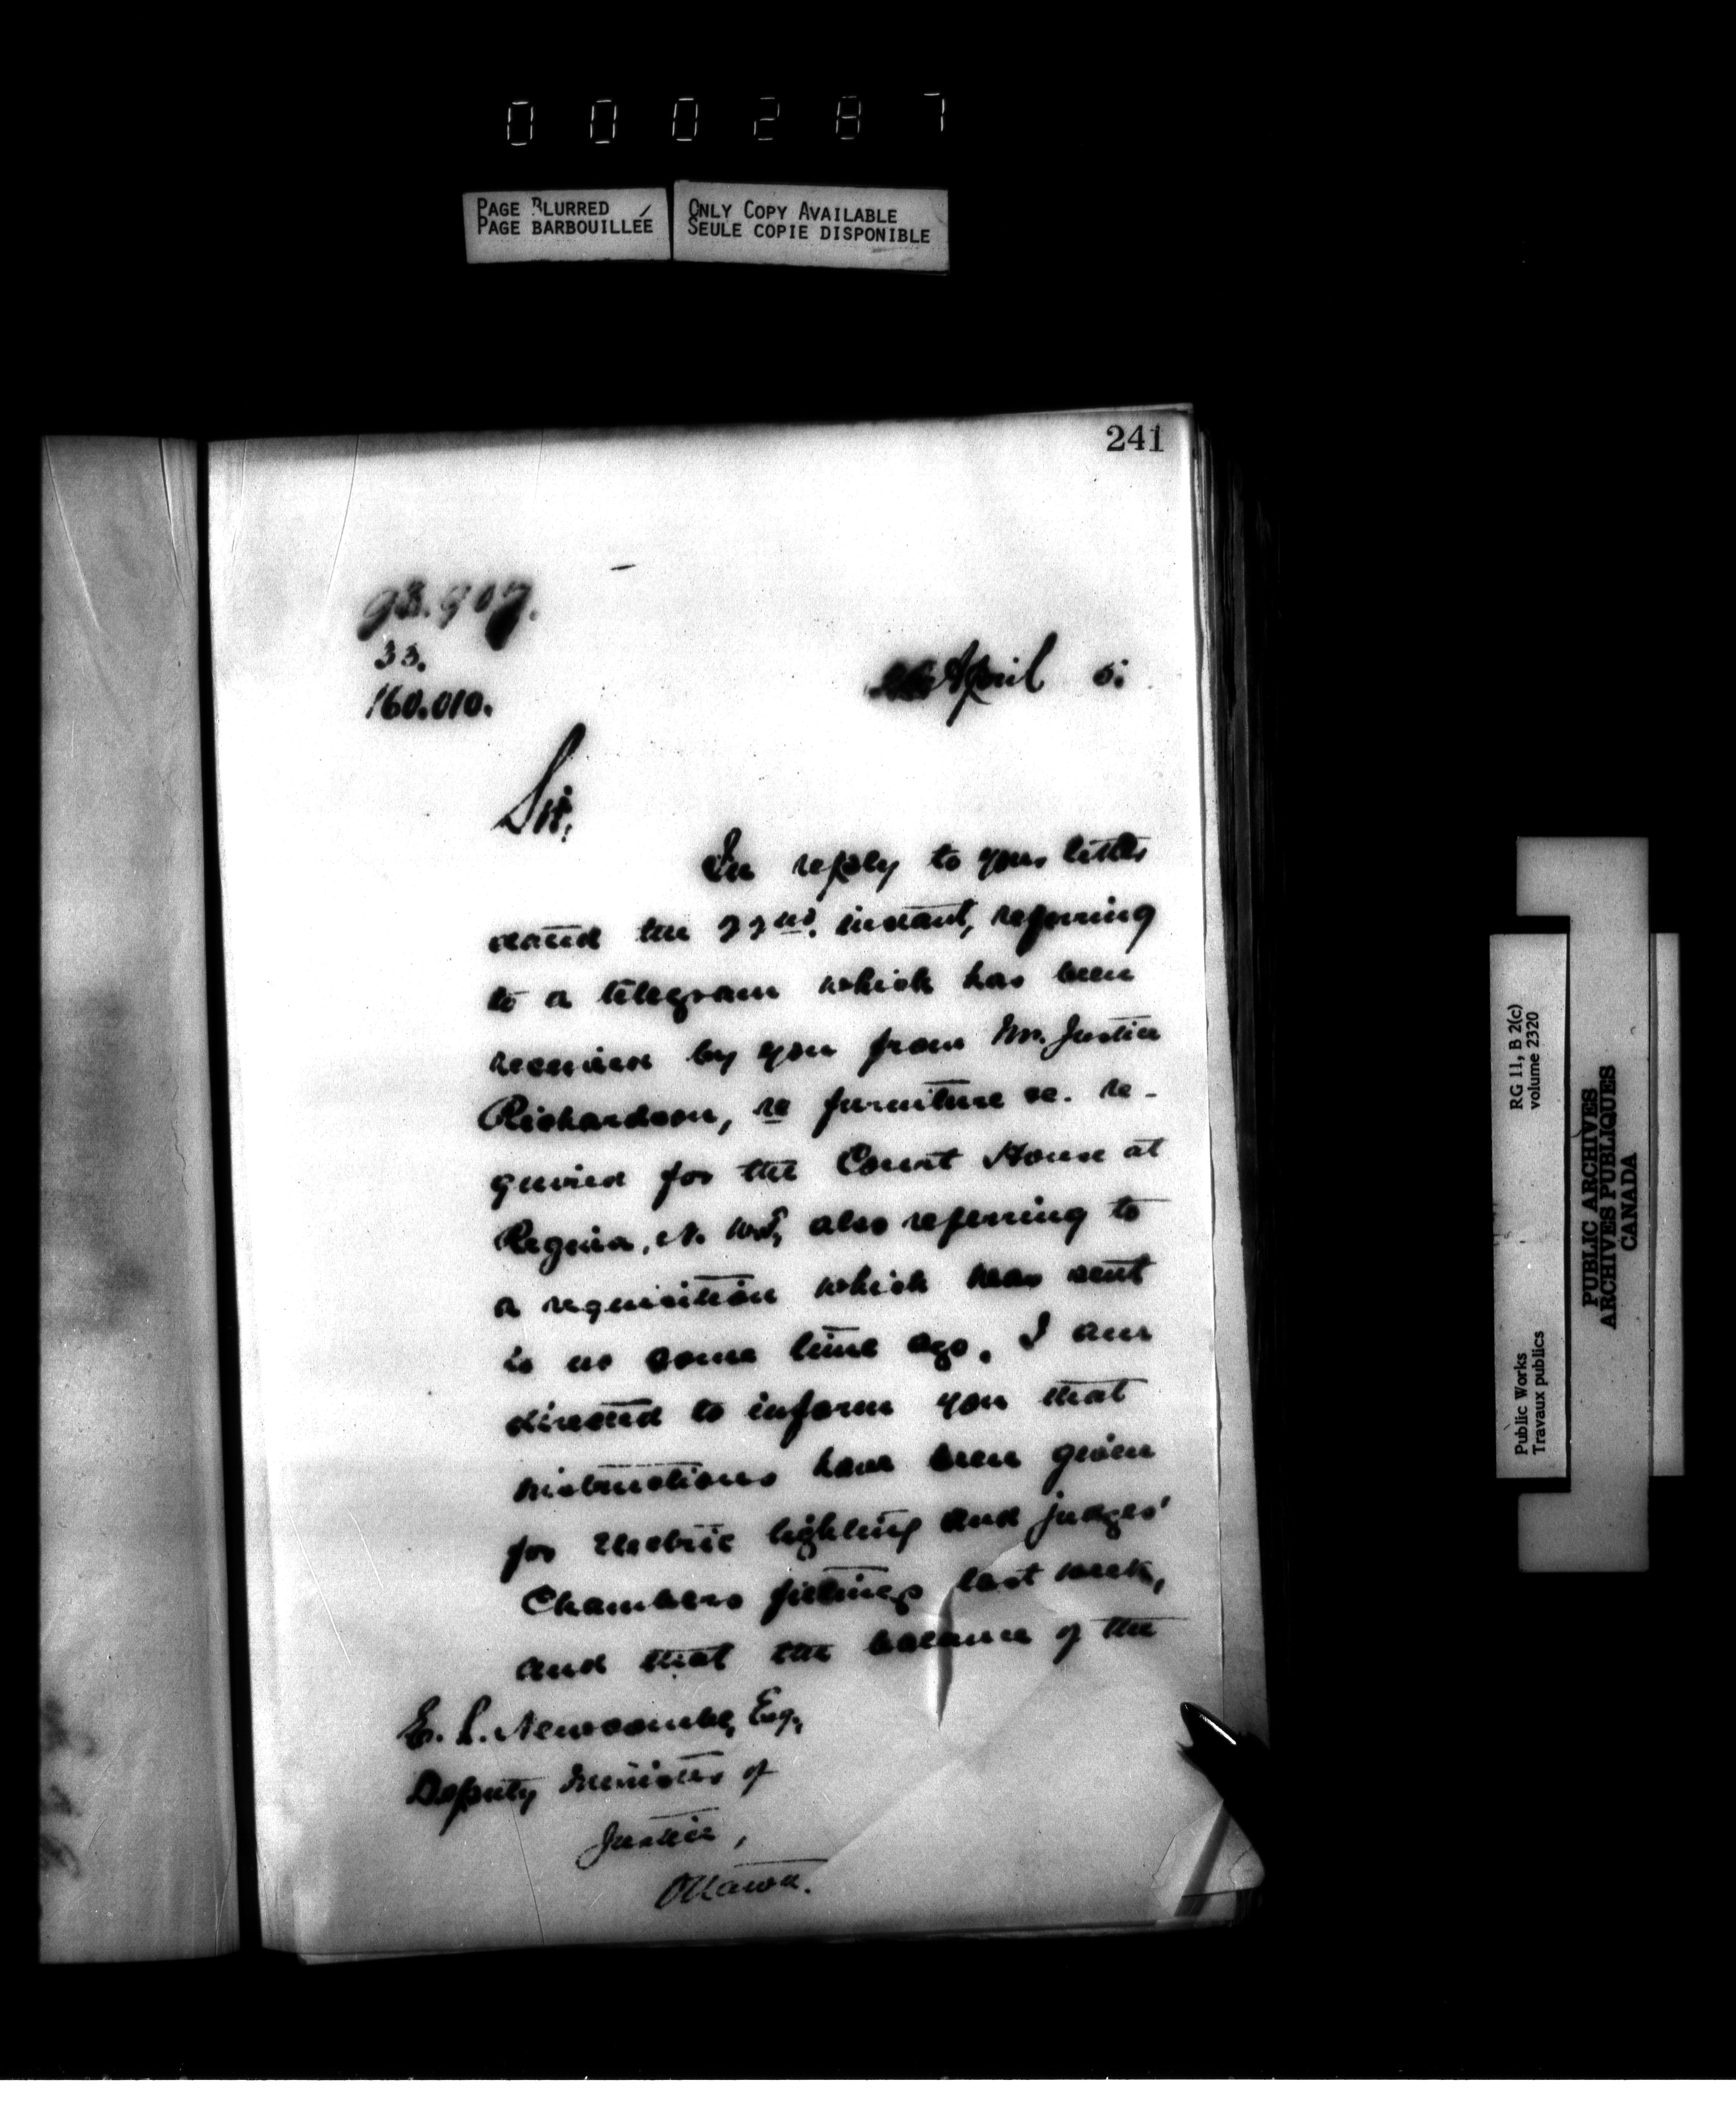 000287
PAGE BLURRED
PAGE BARBOUILLÉE
ONLY COPY AVAILABLE
SEULE COPIE DISPONIBLE
241
33.
160.010.
April 5.
Sir,
In reply to your letter
dated the 22nd. instant, referring
to a telegram which has been
received by you from Mr. Justice
Richardson, re furniture &c. re-
quired for the Court House at
Regina, N. W.T, also referring to
a requisition which was sent
to us some time ago, I am
directed to inform you that
instructions have been given
for electric lighting and judges'
Chambers fittings last week,
and that the balance of the
E. L. Newcombe, Esq.,
Deputy Minister of
Justice,
Ottawa.
RG 11, B 2(c)
volume 2320
Public Works
Travaux publics
PUBLIC ARCHIVES
ARCHIVES PUBLIQUES
CANADA